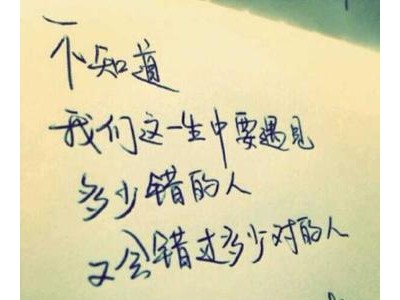 不知道
我们这一生中要遇见
多少错的人
又会错过多少对的人